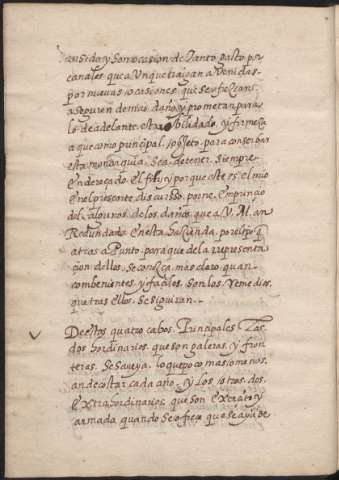 an sido y son ocasion de tanto gasto por
canales que a Un que traygan a Venidas
por nuevas ocasiones que se ofrezcan
aseguren de mas daño y prometan para
lo de adelante esta solidado y firmeza
a que como principal objeto para conserbar
esta monarquia se a de tener siempre
Enderezado El fin y por que este es el mio
En el presente discurso, porne Empunio
del algunos de los daños que a V. M. an
Redundado en esta hazienda por dexar
atras a Punto para que de la rrepresenta
cion dellos se conozca mas claro quan
combenientes y faciles son los rremedios
que tras ellos se siguiran

De estos quatro cabos Principales Los
dos hordinarios que son galeras y fron
teras. Se sabe ya lo que poco mas o menos
an de costar cada año, y Los otros dos
Extrahordinarios que son exercito y
armada quando se ofreze que se ayan de